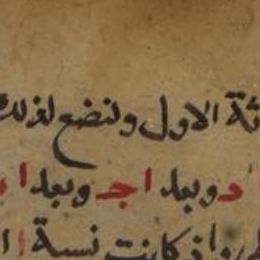 ثة الاول ولنضع لذلك
د وبعد ا ج وبعد ا
واذ كانت نسبة ا